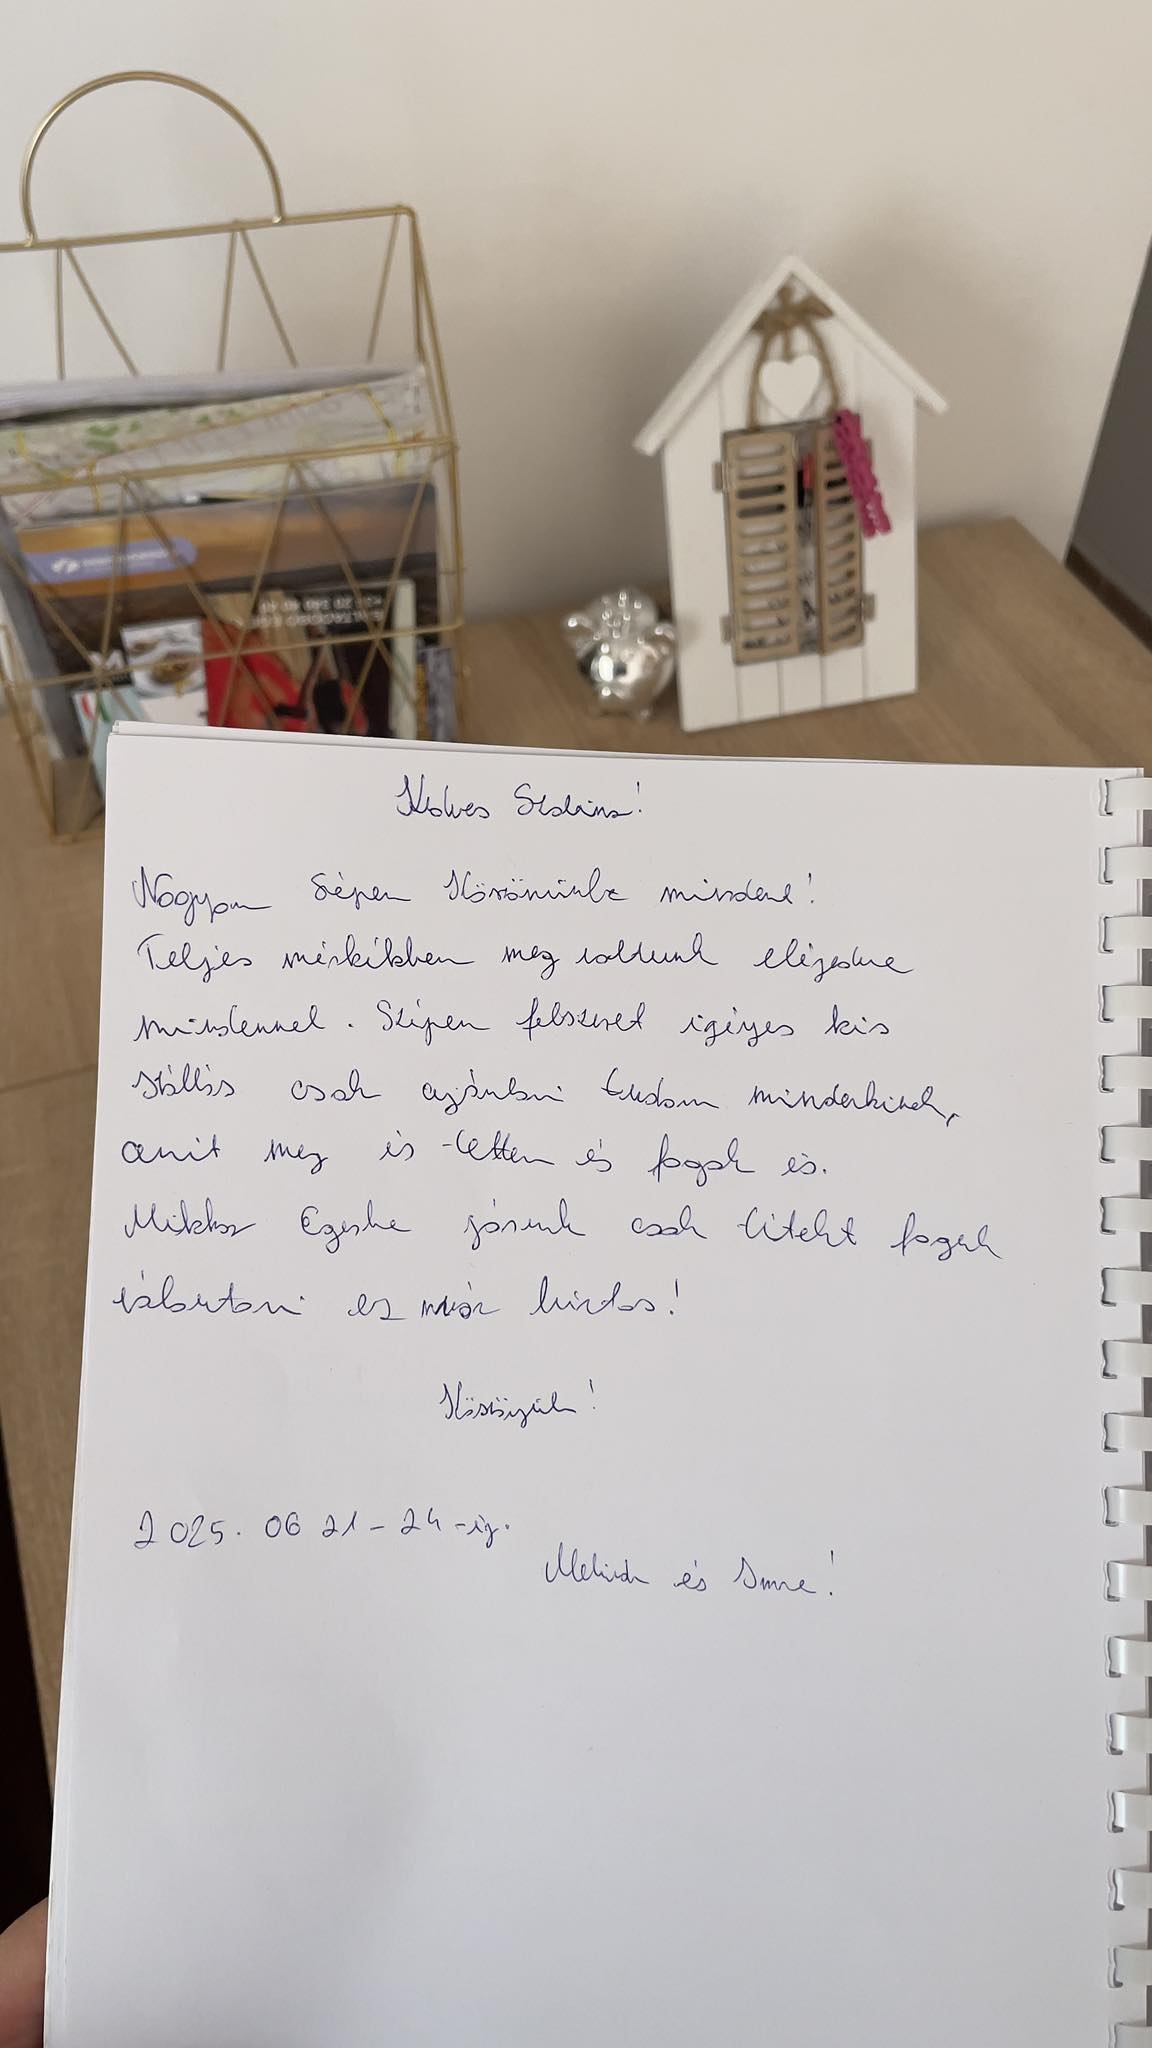 Kedves
Nagyon Szépen Köszönünk mindent!
Teljes mértékben meg voltunk elégedve
mindennel. Szépen felszerelt igényes kis
szállás csak ajánlani tudom mindenkinek,
amit meg is tettem és fogok is.
Mikkor Egerbe járunk csak titeket fogok
választani ez már biztos!
Köszönjük!
2025. 06 21-24-ig.
és Imre!